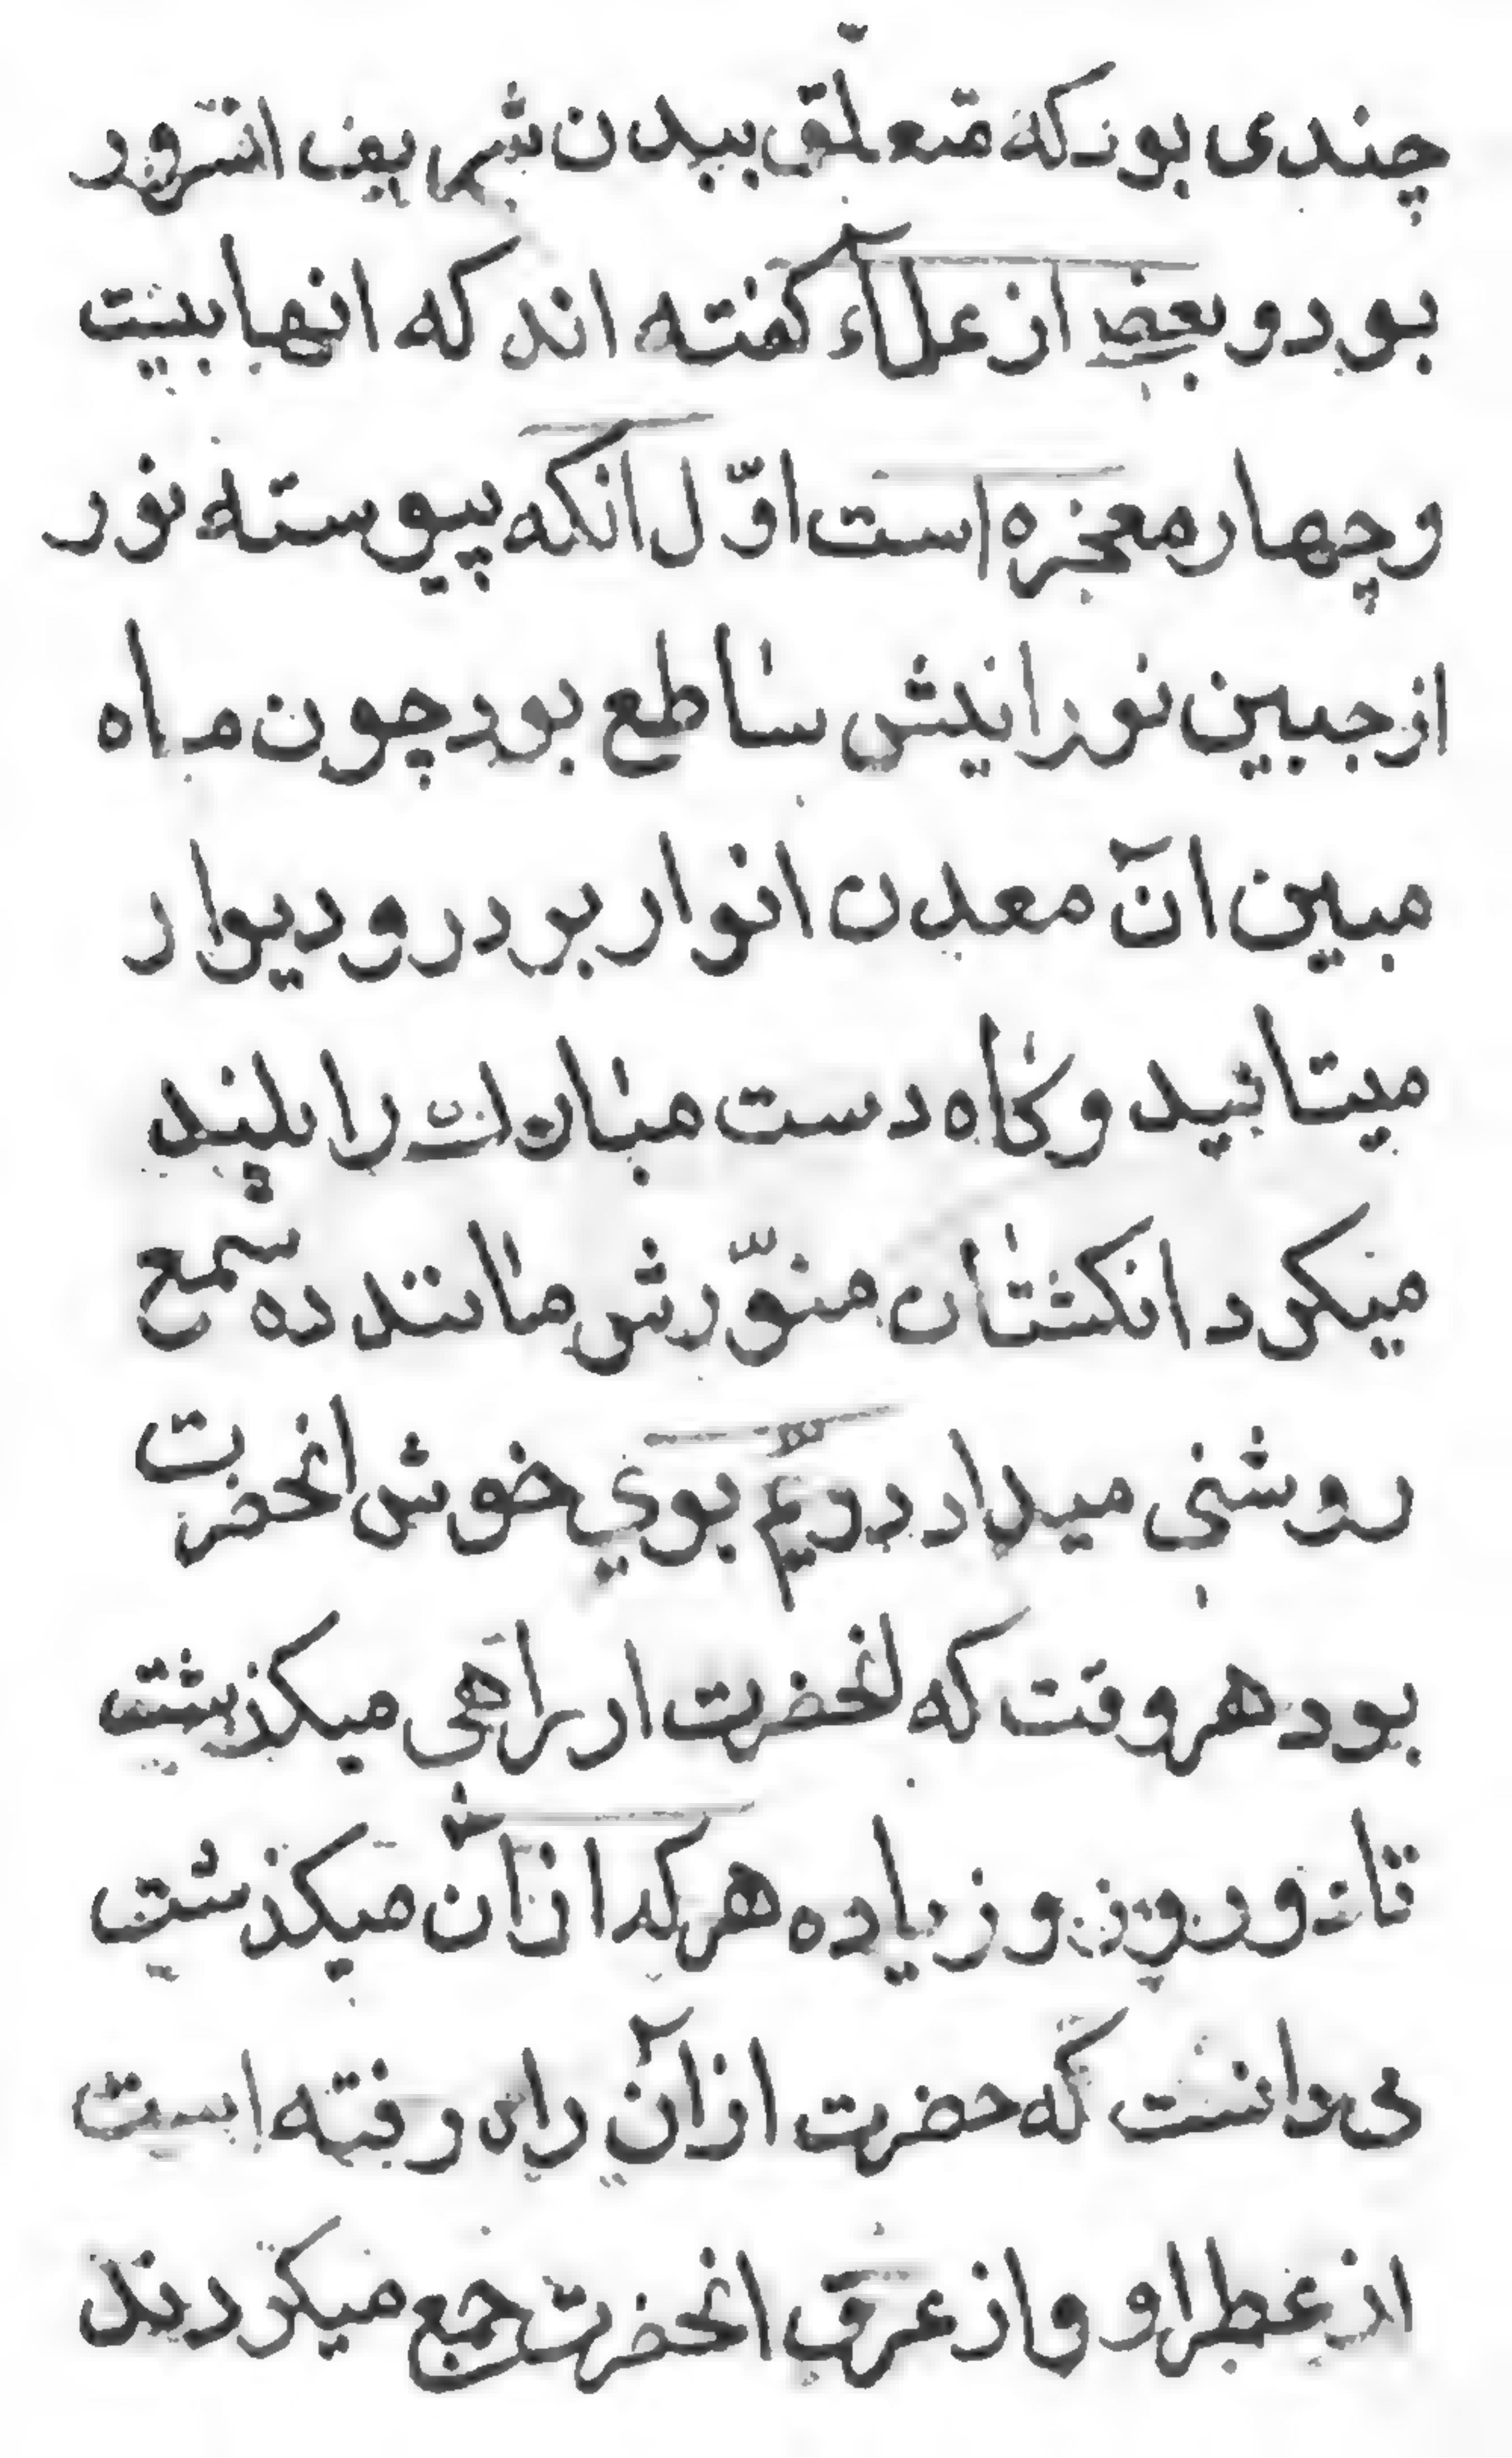 چندی بود که متعلق ببدن شریف انسرور
بود و بعضی از علمآء کفته اند که انها بیست
و چهار معجزه است اوّل انکه پیوسته نور
از جبین نورانیش ساطع بود چون ماه
مبین آن معدن انوار بر در و دیوار
میتابید و کاه دست مبارك را بلند
میکرد انکشتان منوّرش مانند ده شمع
روشنی میداد دویّم بوي خوش انحضرت
بود هر وقت که انحضرت از راهی میکذشت
تا دو روز و زیاده هر که از آن میکذشت
می دانست که حضرت از آن راه رفته است
از عطر او و از عرق انحضرت جمع میکردند